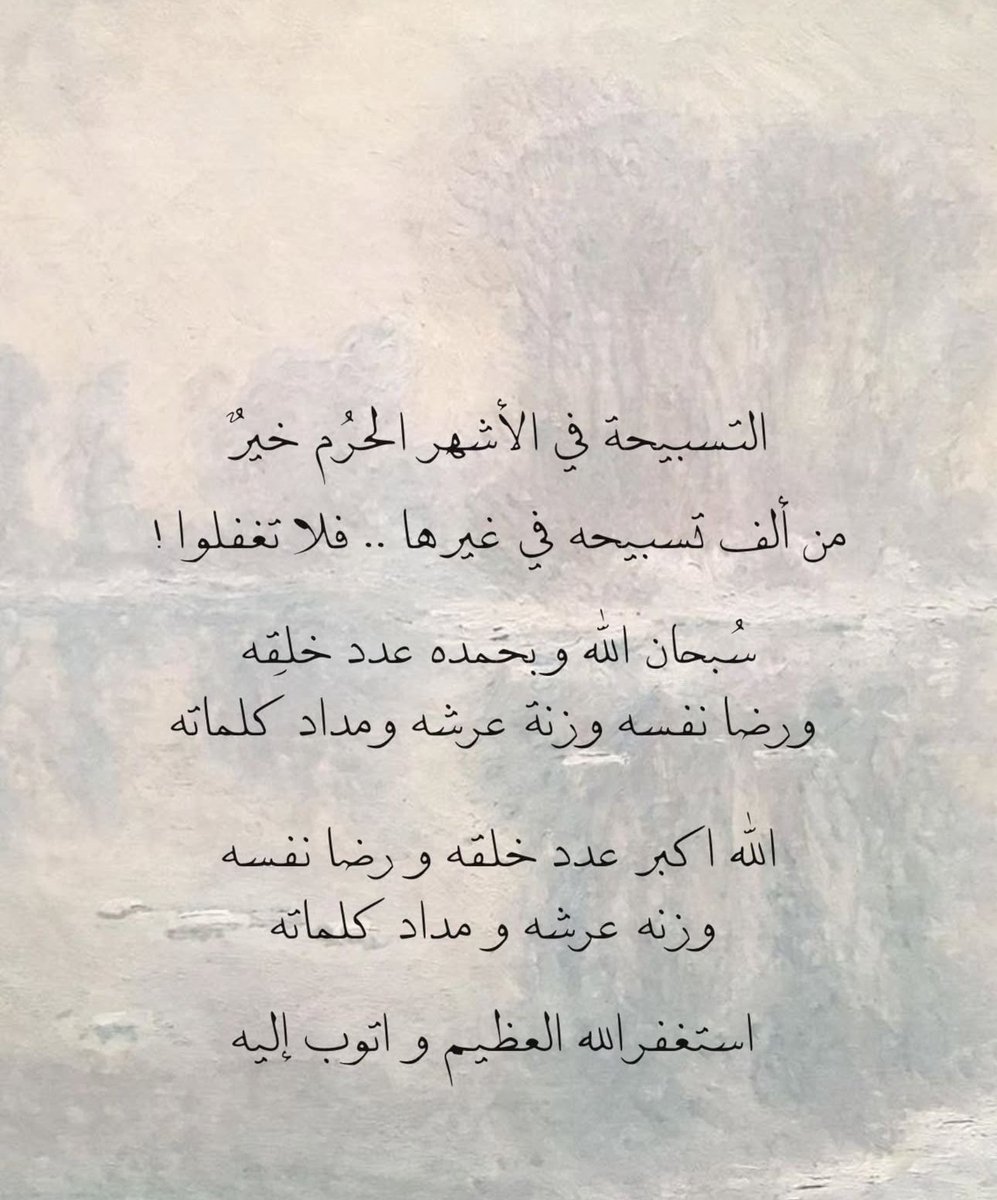 التسبيحة في الأشهر الحرُم خيرٌ
من ألف تسبيحه في غيرها .. فلا تغفلوا !
سُبحان الله وبحمده عدد خلقِه
ورضا نفسه وزنة عرشه ومداد كلماته
الله اكبر عدد خلقه و رضا نفسه
وزنه عرشه و مداد كلماته
استغفرالله العظيم و اتوب إليه